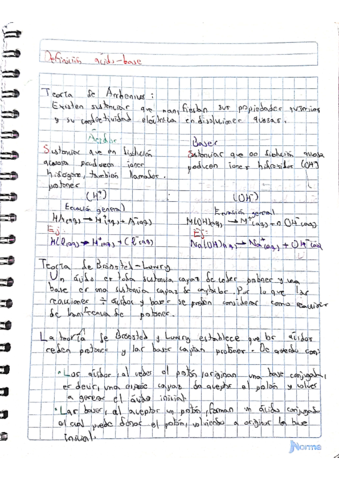 Definición ácido-base
Teoría de Arrhenius:
Existen sustancias que manifiestan sus propiedades químicas
y su conductividad eléctrica en disoluciones acuosas.
Ácidos
Sustancias que en disolución
acuosa producen iones
hidrógeno, también llamados
protones
(H⁺)
Ecuación general
HA(aq) → H⁺(aq) + A⁻(aq)
Ej:
HCl(aq) → H⁺(aq) + Cl⁻(aq)
Bases
Sustancias que en disolución acuosa
producen iones hidroxilos (OH⁻)
(OH⁻)
Ecuación general
M(OH)(aq) → M⁺(aq) + OH⁻(aq)
Ej:
Na(OH)(aq) → Na⁺(aq) + OH⁻(aq)
Teoría de Brönsted-Lowry
Un ácido es toda sustancia capaz de ceder protones y una
base es una sustancia capaz de aceptarlos. Por lo que las
reacciones ÷ ácidos y bases se pueden considerar como reacciones
de transferencia de protones.
La teoría de Brönsted y Lowry establece que los ácidos
ceden protones y las bases captan protones. De acuerdo con:
• Los ácidos, al ceder el protón, originan una base conjugada,
es decir, una especie capaz de aceptar el protón y volver
a generar el ácido inicial.
• Las bases, al aceptar un protón, forman un ácido conjugado
el cual puede donar el protón, volviendo a originar la base
inicial.
Norma